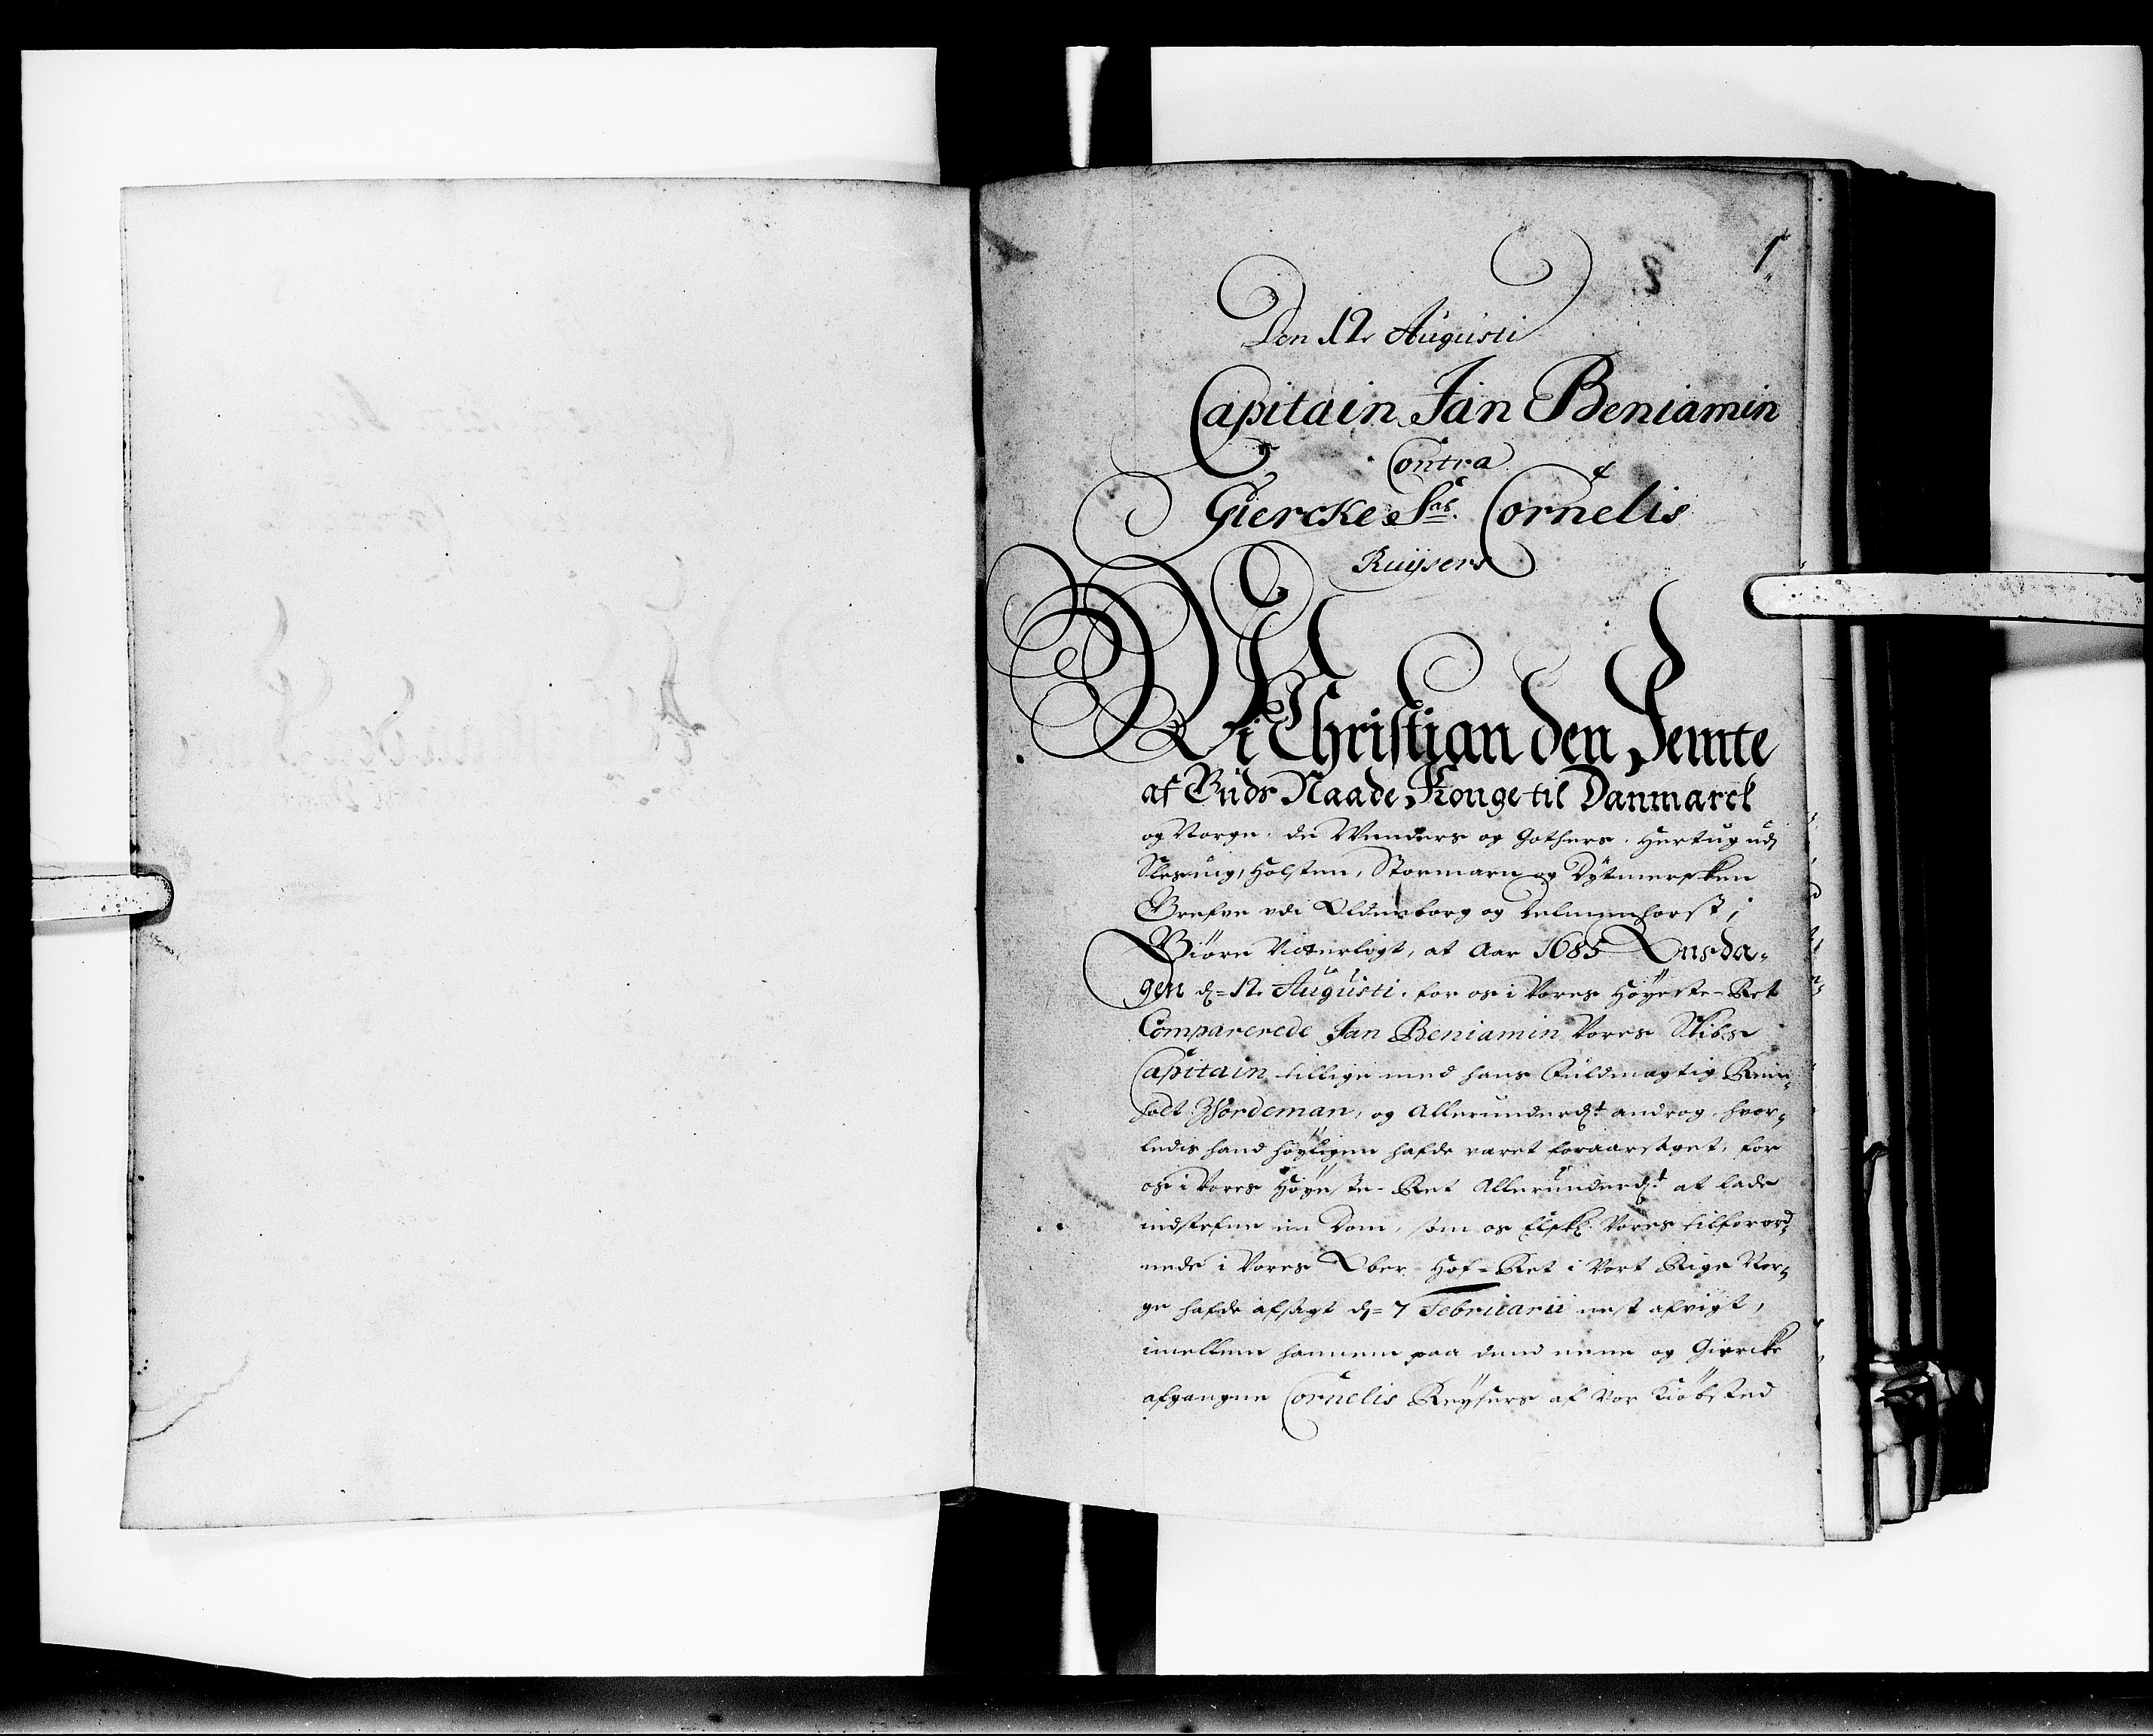 1
Den 12 Augusti
Capitain Jan Beniamin
Contra
Giercke Sal. Cornelis
Ruijsers
Vi Christian den Femte
af Guds Naade Konge til Danmarck
og Norge, de Wenders og Gothers, Hertug udj
Slesvig, Holsten, Stormarn og Dytmersken
Grefve udi Oldenborg og Delmenhorst;
Giøre Vitterligt, at Aar 1685 Onsda-
gen d= 12 Augusti, for os i Vores Høyeste-Ret
Comparerede Jan Beniamin Vores Skibs
Capitain tillige med hans Fuldmægtig Rein-
holt Hordeman, og Allerunderdt androg, hvor-
ledis hand høyligen hafde varet foraarsaget, for
os i Vores Høyeste-Ret Allerunderdt at lade
indstefne en Dom, som os Elskl. Vores tilforord-
nede i Vores Ober-Hof-Ret i Vort Rige Nor-
ge hafde afsagt d= 7 Februarii nest afvigt,
imellem hannem paa dend eene og Giercke
afgangne Cornelis Reysers af Vor Kiøbsted